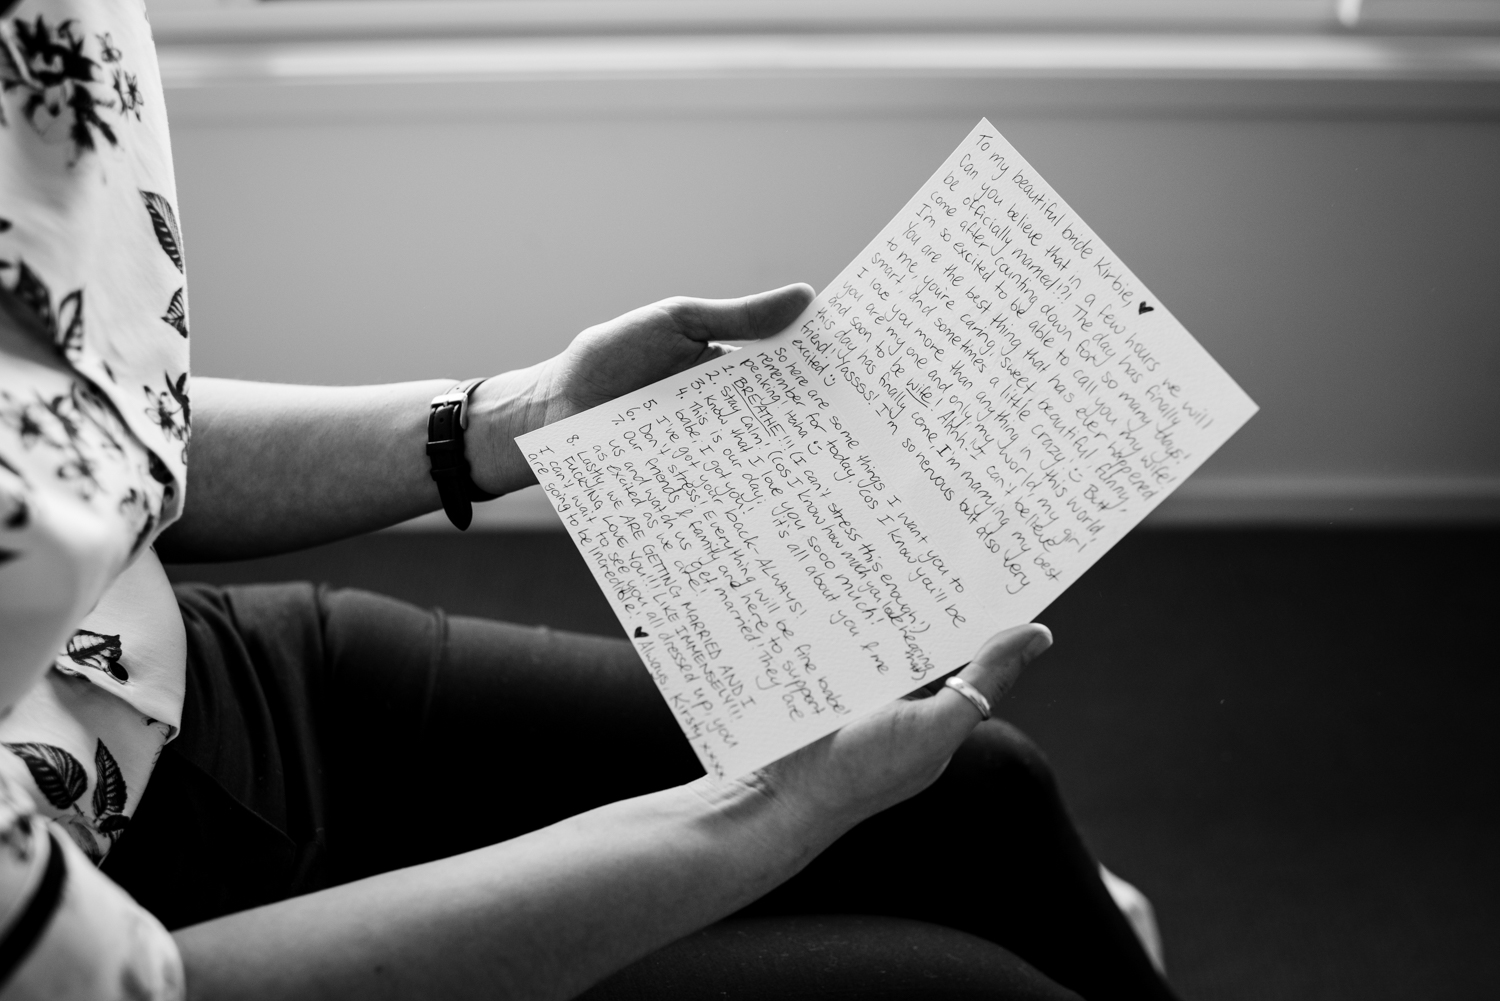 To my beautiful bride Kirbie, ♥
Can you believe that in a few hours we will
be officially married!?! The day has finally
come after counting down for so many days!
I'm so excited to be able to call you my wife!
You are the best thing that has ever happened
to me, you're caring, sweet, beautiful, funny,
smart, and sometimes a little crazy! :) But
I love you more than anything in this world,
you are my one and only, my world, my girl
and soon to be wife! Ahhh, I can't believe
this day has finally come, I'm marrying my best
friend! Yassss! I'm so nervous but also very
excited :)
So here are some things I want you to
remember for today, cos I know you'll be
peaking. Haha :)
1. BREATHE!!! (I can't stress this enough!)
2. Stay calm, (cos I know how much you love heaping
3. Know that I love you sooo much!
4. This is our day, it's all about you & me
babe, I got you!
5. I've got your back - ALWAYS!
6. Don't stress, Everything will be fine babe!
7. Our friends & family and here to support
us and watch us get married! They are
as excited as we are!
8. Lastly, WE ARE GETTING MARRIED AND I
FUCKING LOVE YOU!!! LIKE IMMENSELY!!!
I can't wait to see you all dressed up, you
are going to be incredible! ♥ Always, Kirsty xxxx